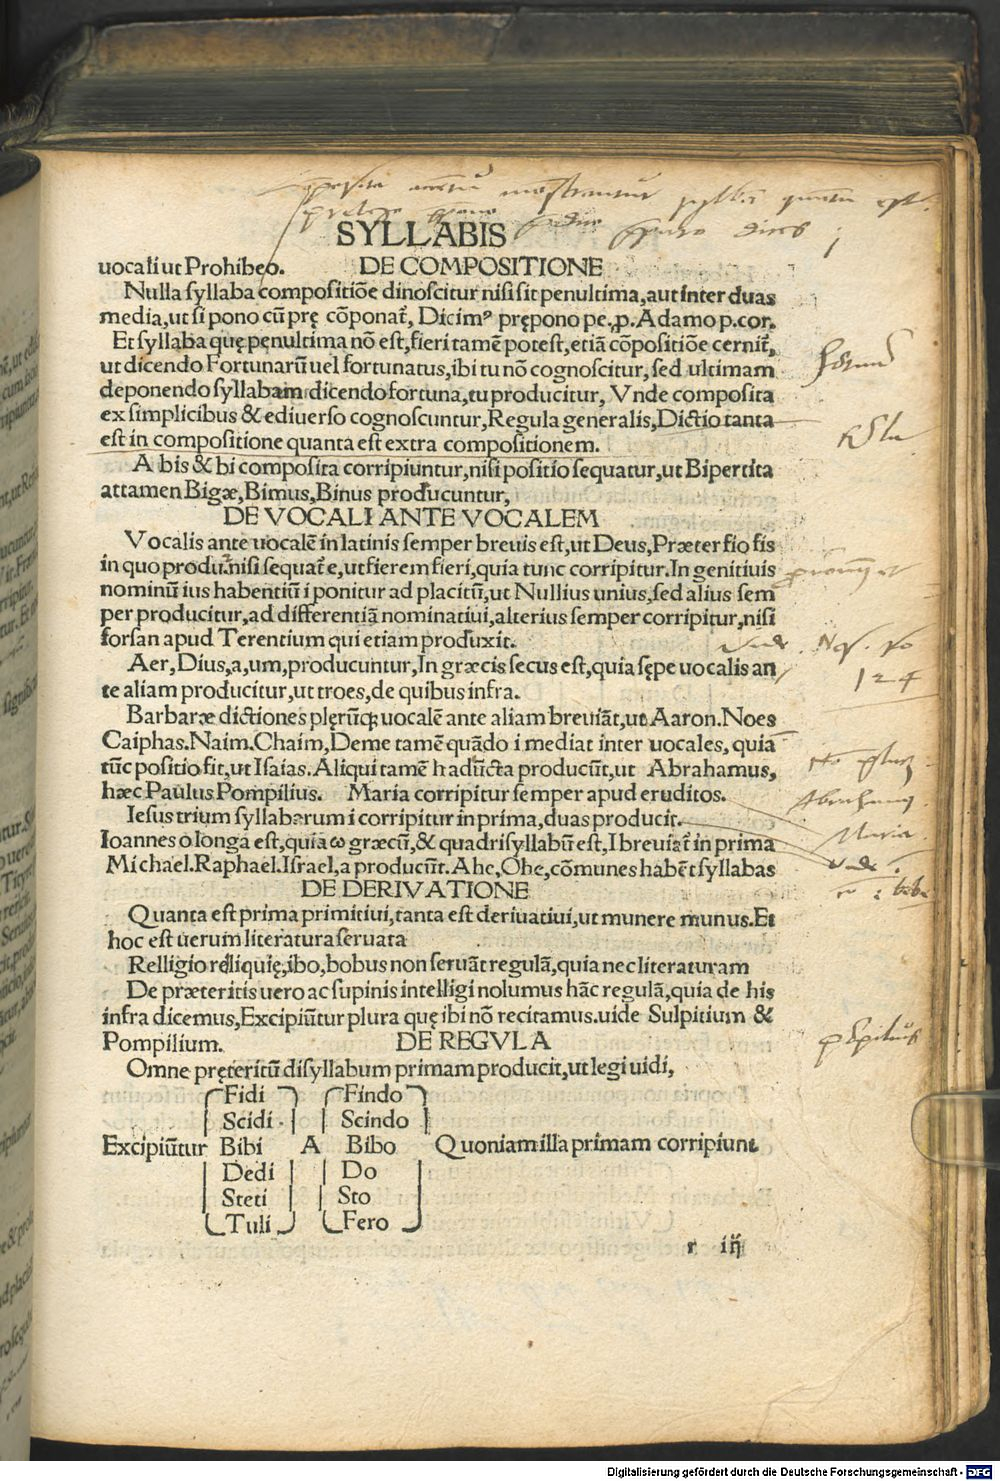 SYLLABIS
uocali ut Prohibeo. DE COMPOSITIONE
Nulla syllaba compositiōe dinoscitur nisi sit penultima, aut inter duas
media, ut si pono cū prę cōponat̄, Dicimꝰ prępono pe. ꝓ. Adamo p. cor.
Et syllaba quę penultima nō est, fieri tamē potest, etiā cōpositiōe cernit̄,
ut dicendo Fortunarū uel fortunatus, ibi tu nō cognoscitur, sed ultimam
deponendo syllabam dicendo fortuna, tu producitur, Vnde composita
ex simplicibus & ediuerso cognoscuntur, Regula generalis, Dictio tanta
est in compositione quanta est extra compositionem.
A bis & bi composita corripiuntur, nisi positio sequatur, ut Bipertita
attamen Bigæ, Bimus, Binus producuntur,
DE VOCALI ANTE VOCALEM
Vocalis ante uocalē in latinis semper breuis est, ut Deus, Præter fio fis
in quo produ. nisi sequat̄ e, ut fierem fieri, quia tunc corripitur. In genitiuis
nominū ius habentiū i ponitur ad placitū, ut Nullius unius, sed alius sem
per producitur, ad differentiā nominatiui, alterius semper corripitur, nisi
forsan apud Terentium qui etiam produxit.
Aer, Dius, a, um, producuntur, In græcis secus est, quia sępe uocalis an
te aliam producitur, ut troes, de quibus infra.
Barbaræ dictiones plerūqꝫ uocalē ante aliam breuiāt, ut Aaron. Noes
Caiphas. Naim. Chaim, Deme tamē quādo i mediat inter uocales, quia
tūc positio fit, ut Isaias. Aliqui tamē h adiūcta producūt, ut Abrahamus,
hæc Paulus Pompilius. Maria corripitur semper apud eruditos.
Iesus trium syllabarum i corripitur in prima, duas producit.
Ioannes o longa est, quia ω græcū, & quadrisyllabū est, I breuiat̄ in prima
Michael. Raphael. Israel, a producūt. Ahe, Ohe, cōmunes habēt syllabas
DE DERIVATIONE
Quanta est prima primitiui, tanta est deriuatiui, ut munere munus. Et
hoc est uerum literatura seruata
Relligio reliquię, ibo, bobus non seruāt regulā, quia nec literaturam
De præteritis uero ac supinis intelligi nolumus hāc regulā, quia de his
infra dicemus, Excipiūtur plura quę ibi nō recitamus. uide Sulpitium &
Pompilium. DE REGVLA
Omne pręteritū disyllabum primam producit, ut legi uidi,
Fidi Findo
Scidi Scindo
Excipiūtur Bibi A Bibo Quoniam illa primam corripiunt
Dedi Do
Steti Sto
Tuli Fero
r iij
124
Maria
Digitalisierung gefördert durch die Deutsche Forschungsgemeinschaft - DFG